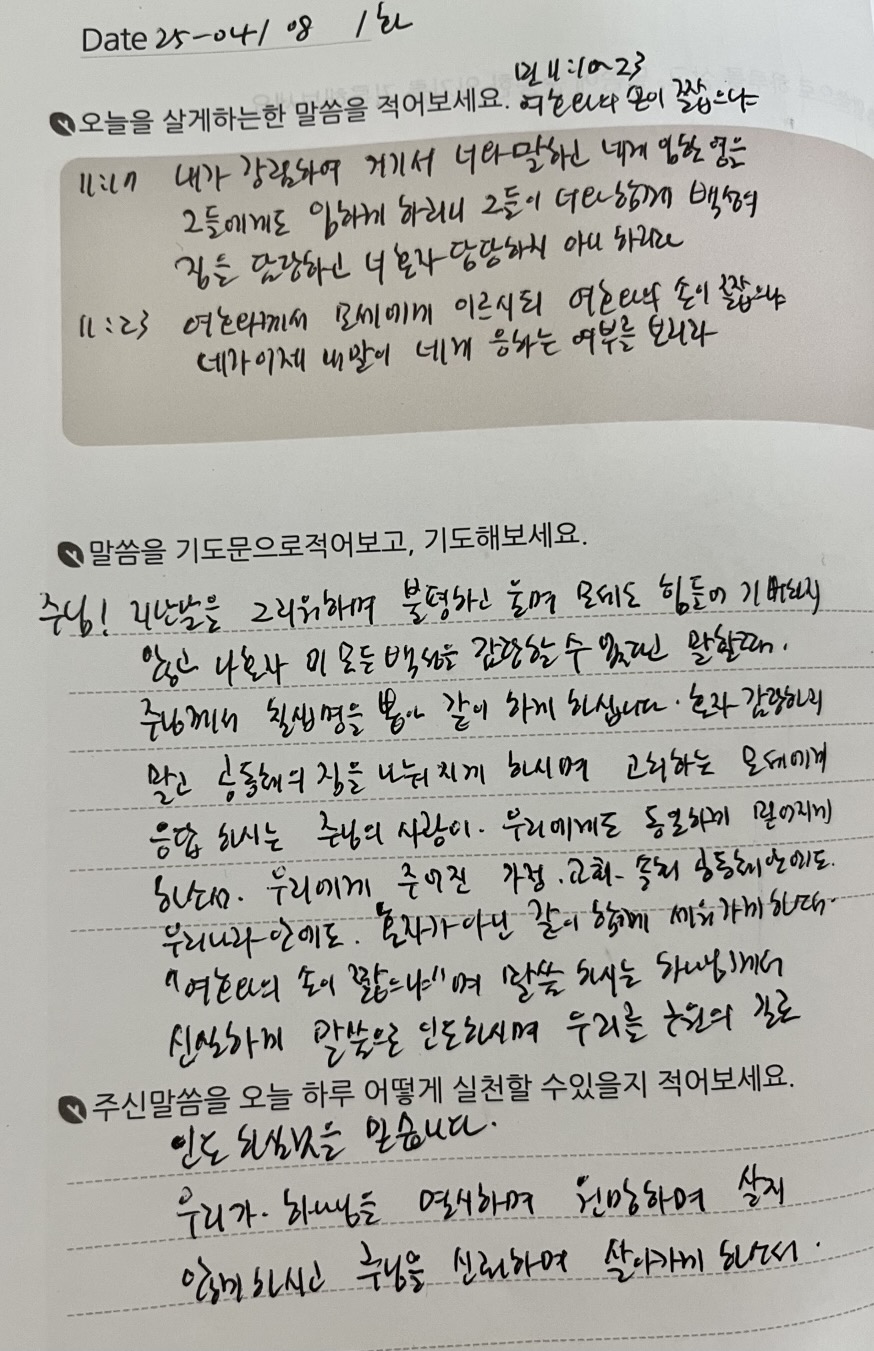 Date 25-04/ 08 /화
민 11:10~23
오늘을 살게하는한 말씀을 적어보세요. 여호와의 손이 짧으냐
11:17 내가 강림하여 거기서 너와 말하고 네게 임한 영을
그들에게도 임하게 하리니 그들이 너와 함께 백성의
짐을 담당하고 너 혼자 담당하지 아니 하리라
11:23 여호와께서 모세에게 이르시되 여호와의 손이 짧으냐
네가 이제 내 말이 네게 응하는 여부를 보리라
말씀을 기도문으로적어보고, 기도해보세요.
주님! 지난날을 그리워하며 불평하고 울며 모세도 힘들어 기뻐하지
않고 나 혼자 이 모든 백성을 감당할 수 없다고 말할때.
주님께서 칠십명을 뽑아 같이 하게 하십니다. 혼자 감당하지
말고 공동체의 짐을 나눠지게 하시며 고뇌하는 모세에게
응답 하시는 주님의 사랑이. 우리에게도 동일하게 믿어지게
하소서. 우리에게 주어진 가정. 교회. 속회 공동체 안에도.
우리나라 안에도. 혼자가 아닌 같이 함께 세워가게 하소서.
"여호와의 손이 짧으냐"며 말씀 하시는 하나님께서
신실하게 말씀으로 인도하시며 우리를 구원의 길로
주신말씀을 오늘 하루 어떻게 실천할 수있을지 적어보세요.
인도 하실것을 믿습니다.
우리가. 하나님을 멸시하며 원망하며 살지
않게 하시고 주님을 신뢰하며 살아가게 하소서.